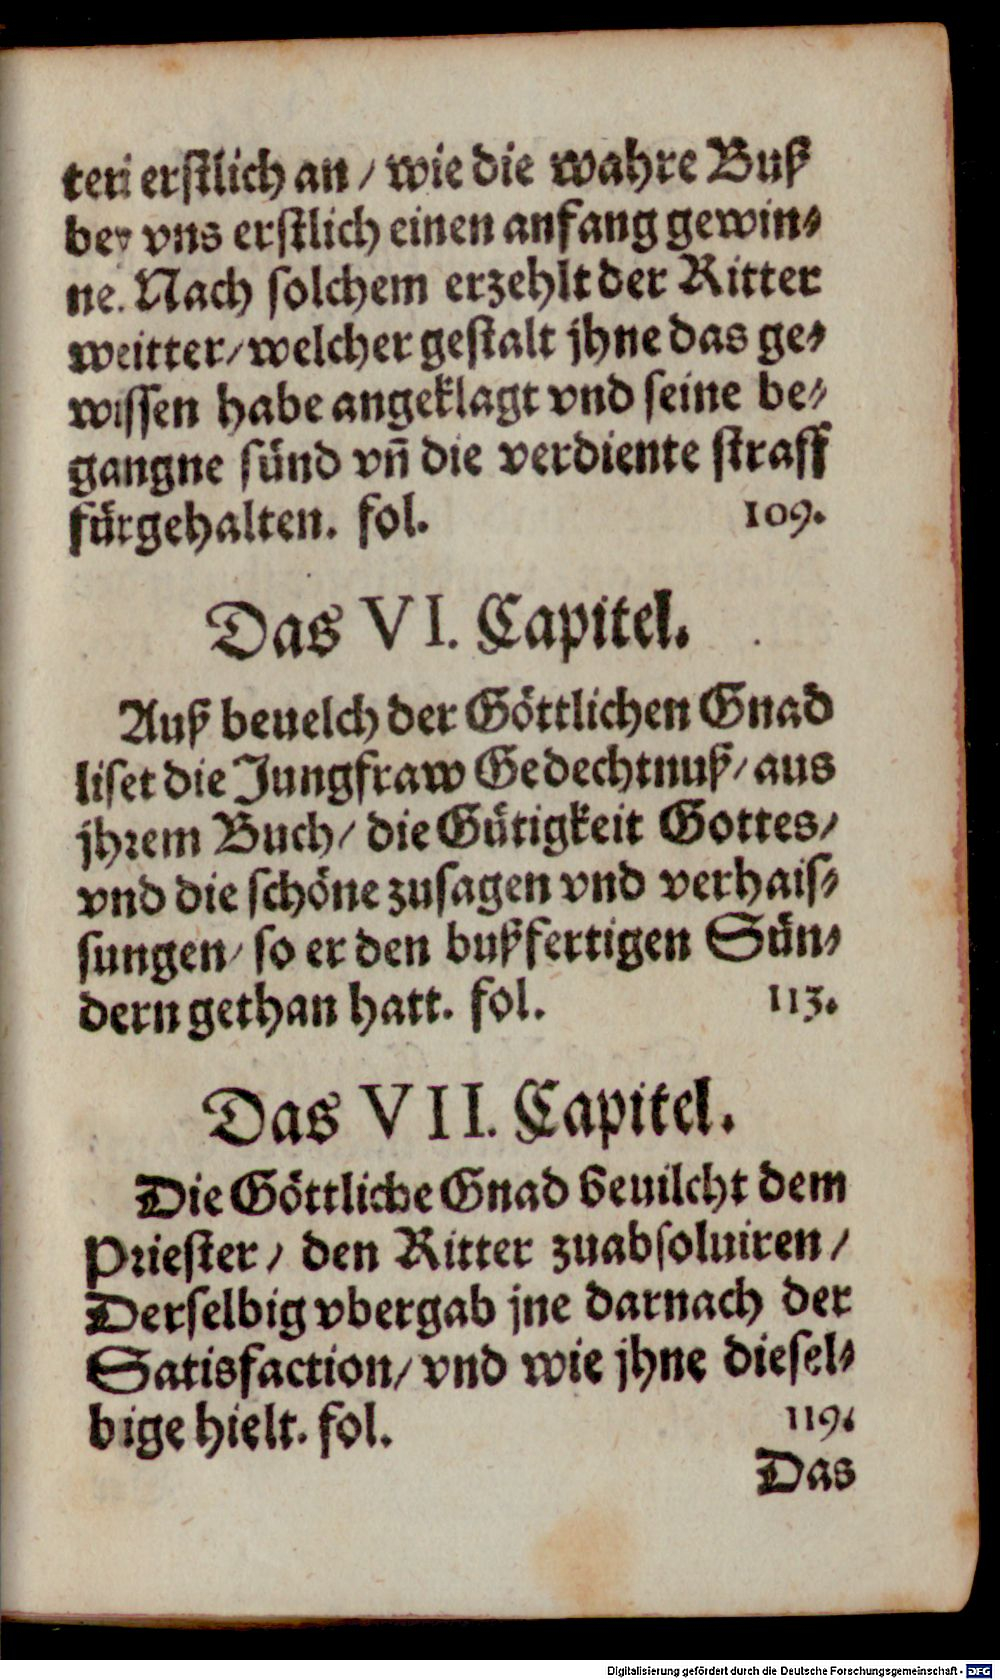 teri erstlich an / wie die wahre Buß
bey vns erstlich einen anfang gewin⸗
ne. Nach solchem erzehlt der Ritter
weitter / welcher gestalt jhne das ge⸗
wissen habe angeklagt vnd seine be⸗
gangne sünd vn̄ die verdiente straff
fürgehalten. fol. 109.
Das VI. Capitel.
Auß beuelch der Göttlichen Gnad
liset die Jungfraw Gedechtnuß / aus
jhrem Buch / die Gütigkeit Gottes /
vnd die schöne zusagen vnd verhais⸗
sungen / so er den bußfertigen Sün⸗
dern gethan hatt. fol. 113.
Das VII. Capitel.
Die Göttliche Gnad beuilcht dem
Priester / den Ritter zuabsoluiren /
Derselbig vbergab jne darnach der
Satisfaction / vnd wie jhne diesel⸗
bige hielt. fol. 119.
Das
Digitalisierung gefördert durch die Deutsche Forschungsgemeinschaft - DFG